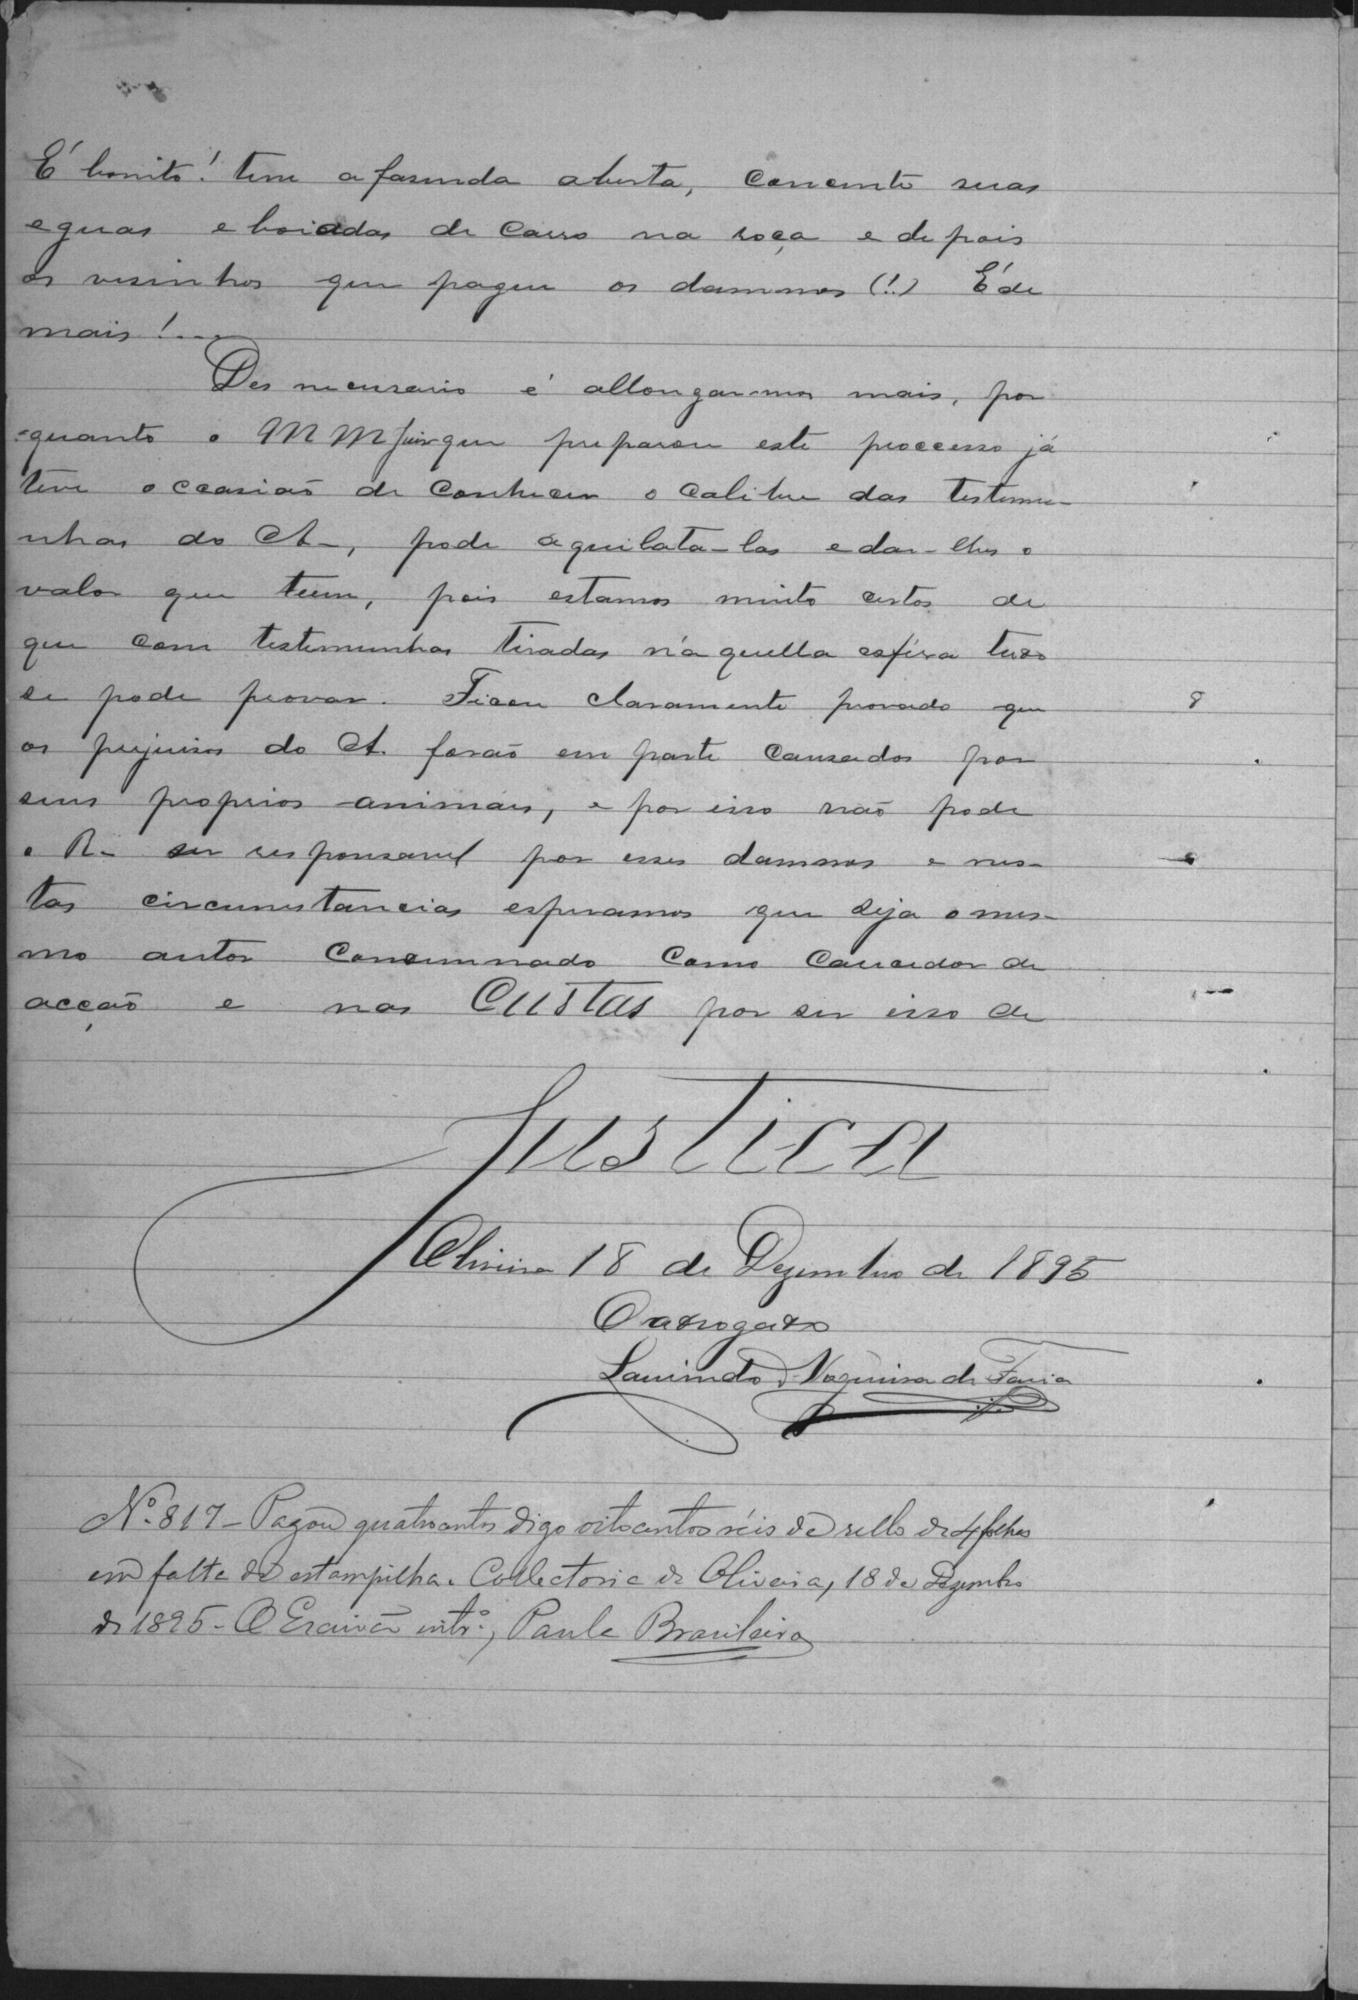 É bonito! tem a fasenda aberta, concente suas
eguas e boiadas de carro na roça e depois
os vesinhos que pague os damnos (!) É de
mais!....
Des necessario é allongar-mos mais, por
quanto o M M Juiz que preparou este processo já
teve occasião de conhecer o calibre das testemu-
nhas do A-, pode aquilata-las e dar-lhes o
valor que teem, pois estamos muito certos de
que com testemunhas tiradas n'aquella esfera tudo
se pode provar. Ficou claramente provado que
os prejuisos do A. forão em parte causados por
seus proprios animaes, e por isso não pode
o R- ser responsavel por esses damnos e nes-
tas circumstancias esperamos que seja o mes-
mo autor condemnado como carecedor de
acção e nas Custas por ser isso de
Justiça
Oliveira 18 de Dezembro de 1895
O advogado
Laurindo Nogueira de Faria
8
Nº 817 - Pagou quatrocentos digo oitocentos réis de sello de 4 folhas
em falta de estampilha. Collectoria de Oliveira, 18 de Dezembro
de 1895 - O Escrivão intrº, Paula Brasileiro